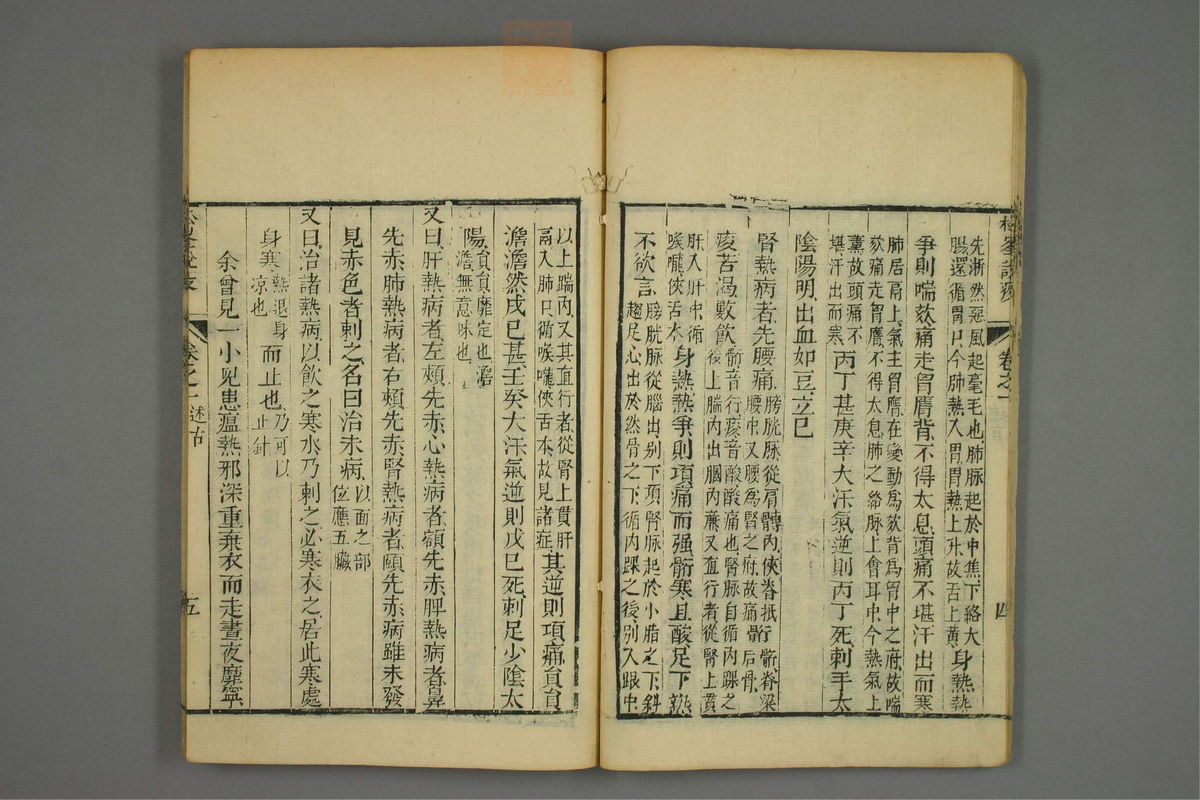 松峯說疫
卷之一
四
先淅然惡風起毫毛也肺脈起於中焦下絡大
腸還循胃口今肺熱入胃胃熱上升故舌上黃身熱熱
爭則喘欬痛走胷膺背不得太息頭痛不堪汗出而寒
肺居鬲上氣主胷膺在變動爲欬背爲胷中之府故喘
欬痛走胷膺不得太息肺之絡脉上會耳中今熱氣上
薰故頭痛不
堪汗出而寒丙丁甚庚辛大汗氣逆則丙丁死刺手太
陰陽明出血如豆立已
腎熱病者先腰痛膀胱脈從肩髆內俠脊抵
腰中又腰爲腎之府故痛䯒
痠苦渴數飲䯒音行痠音酸酸痛也腎脉自循內踝之
後上腨內出膕內亷又直行者從腎上貫
肝入肝中循
喉嚨俠舌本身熱熱爭則項痛而强䯒寒且酸足下熱
不欲言膀胱脈從腦出别下項腎脉起於小脂之下斜
趨足心出於然骨之下循內踝之後别入跟中
以上踹內又其直行者從腎上貫肝
鬲入肺口循喉嚨俠舌本故見諸症其逆則項痛員員
澹澹然戊巳甚壬癸大汗氣逆則戊巳死刺足少陰太
陽員員靡定也澹
澹無意味也
又曰肝熱病者左頰先赤心熱病者額先赤脾熱病者鼻
先赤肺熱病者右頰先赤腎熱病者頤先赤病雖未發
見赤色者刺之名曰治未病以面之部
位應五臟
又曰治諸熱病以飲之寒水乃刺之必寒衣之居此寒處
身寒熱退身
凉也而止也乃可以
止針
余曾見一小兒患瘟熱邪深重棄衣而走晝夜靡寧
松峯說疫
卷之一
述古
五